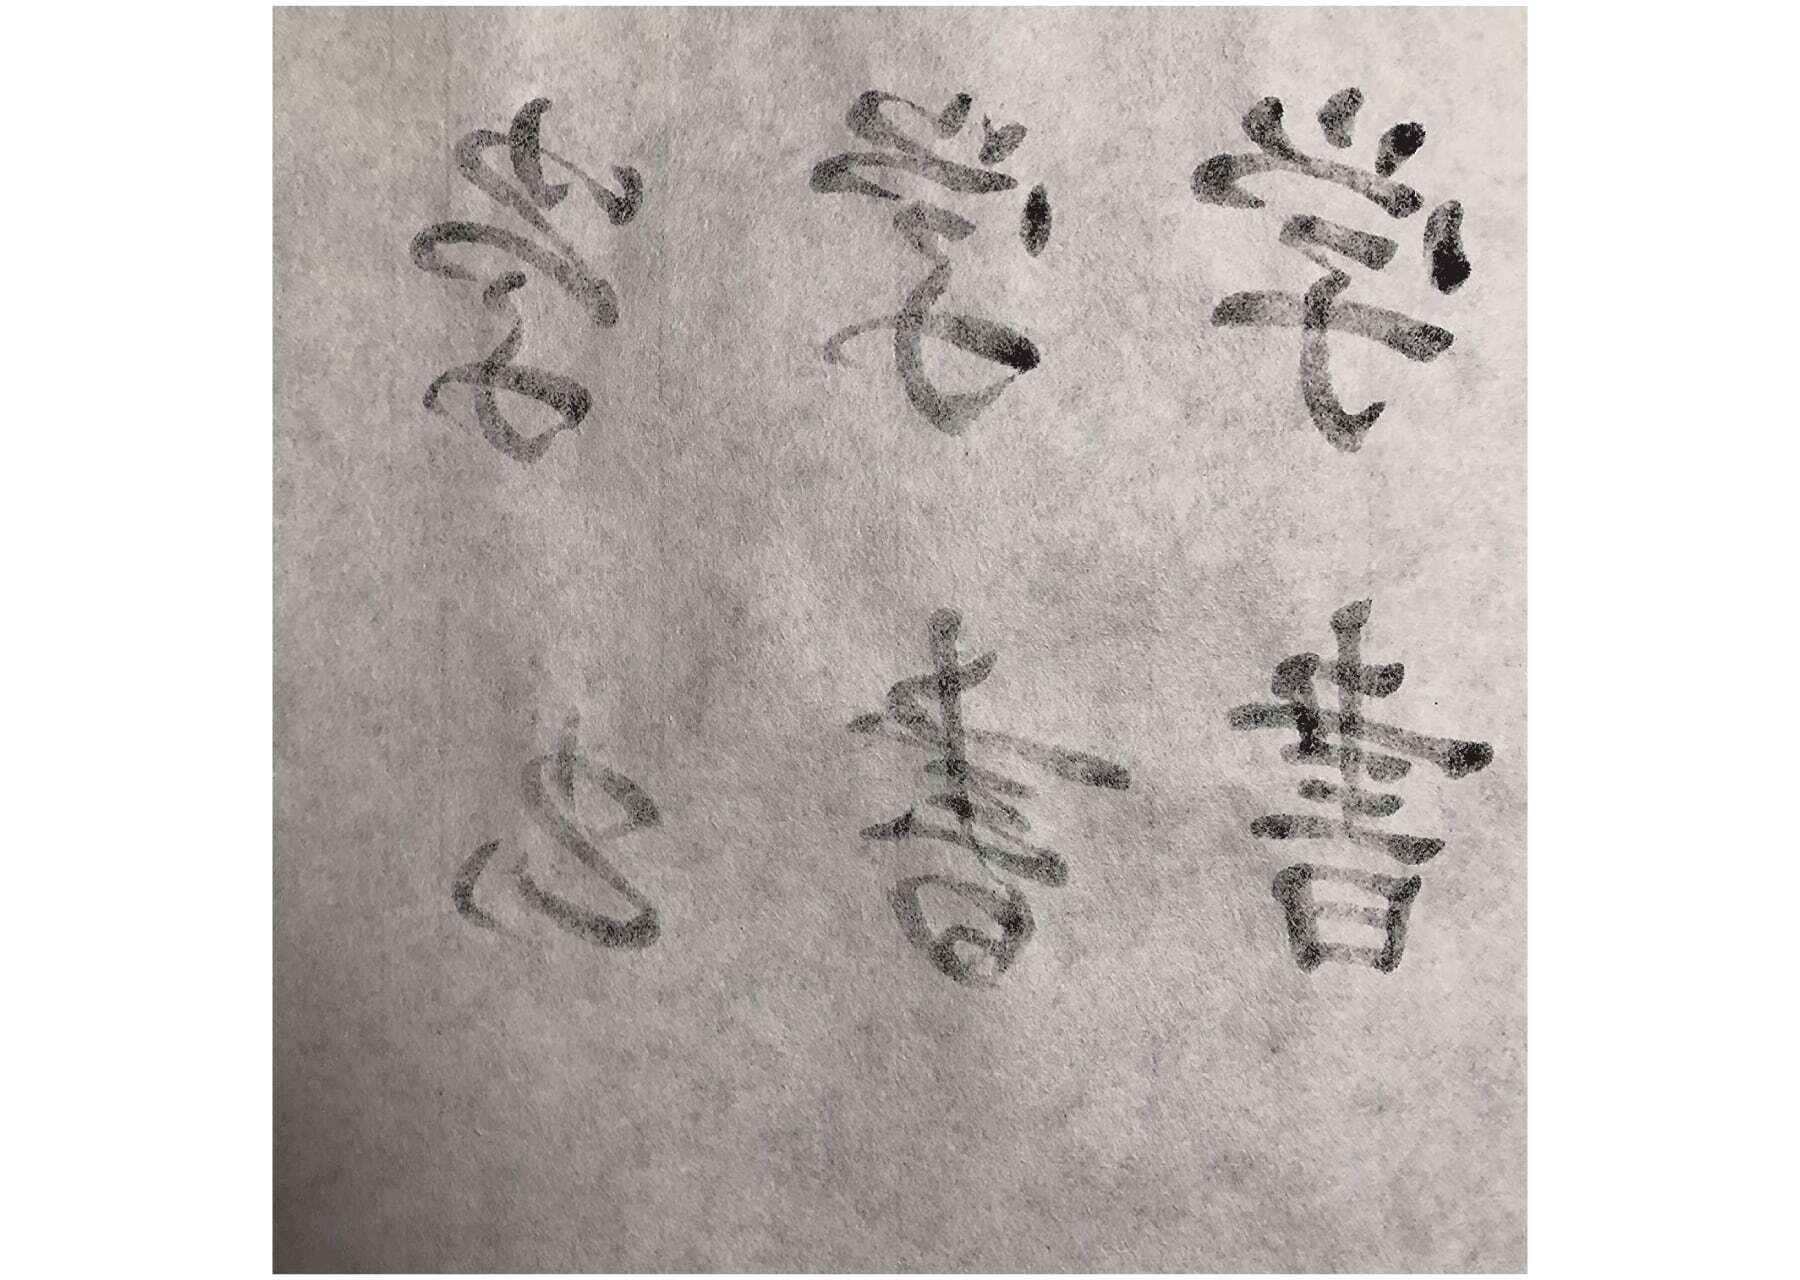 学書
学書
学書